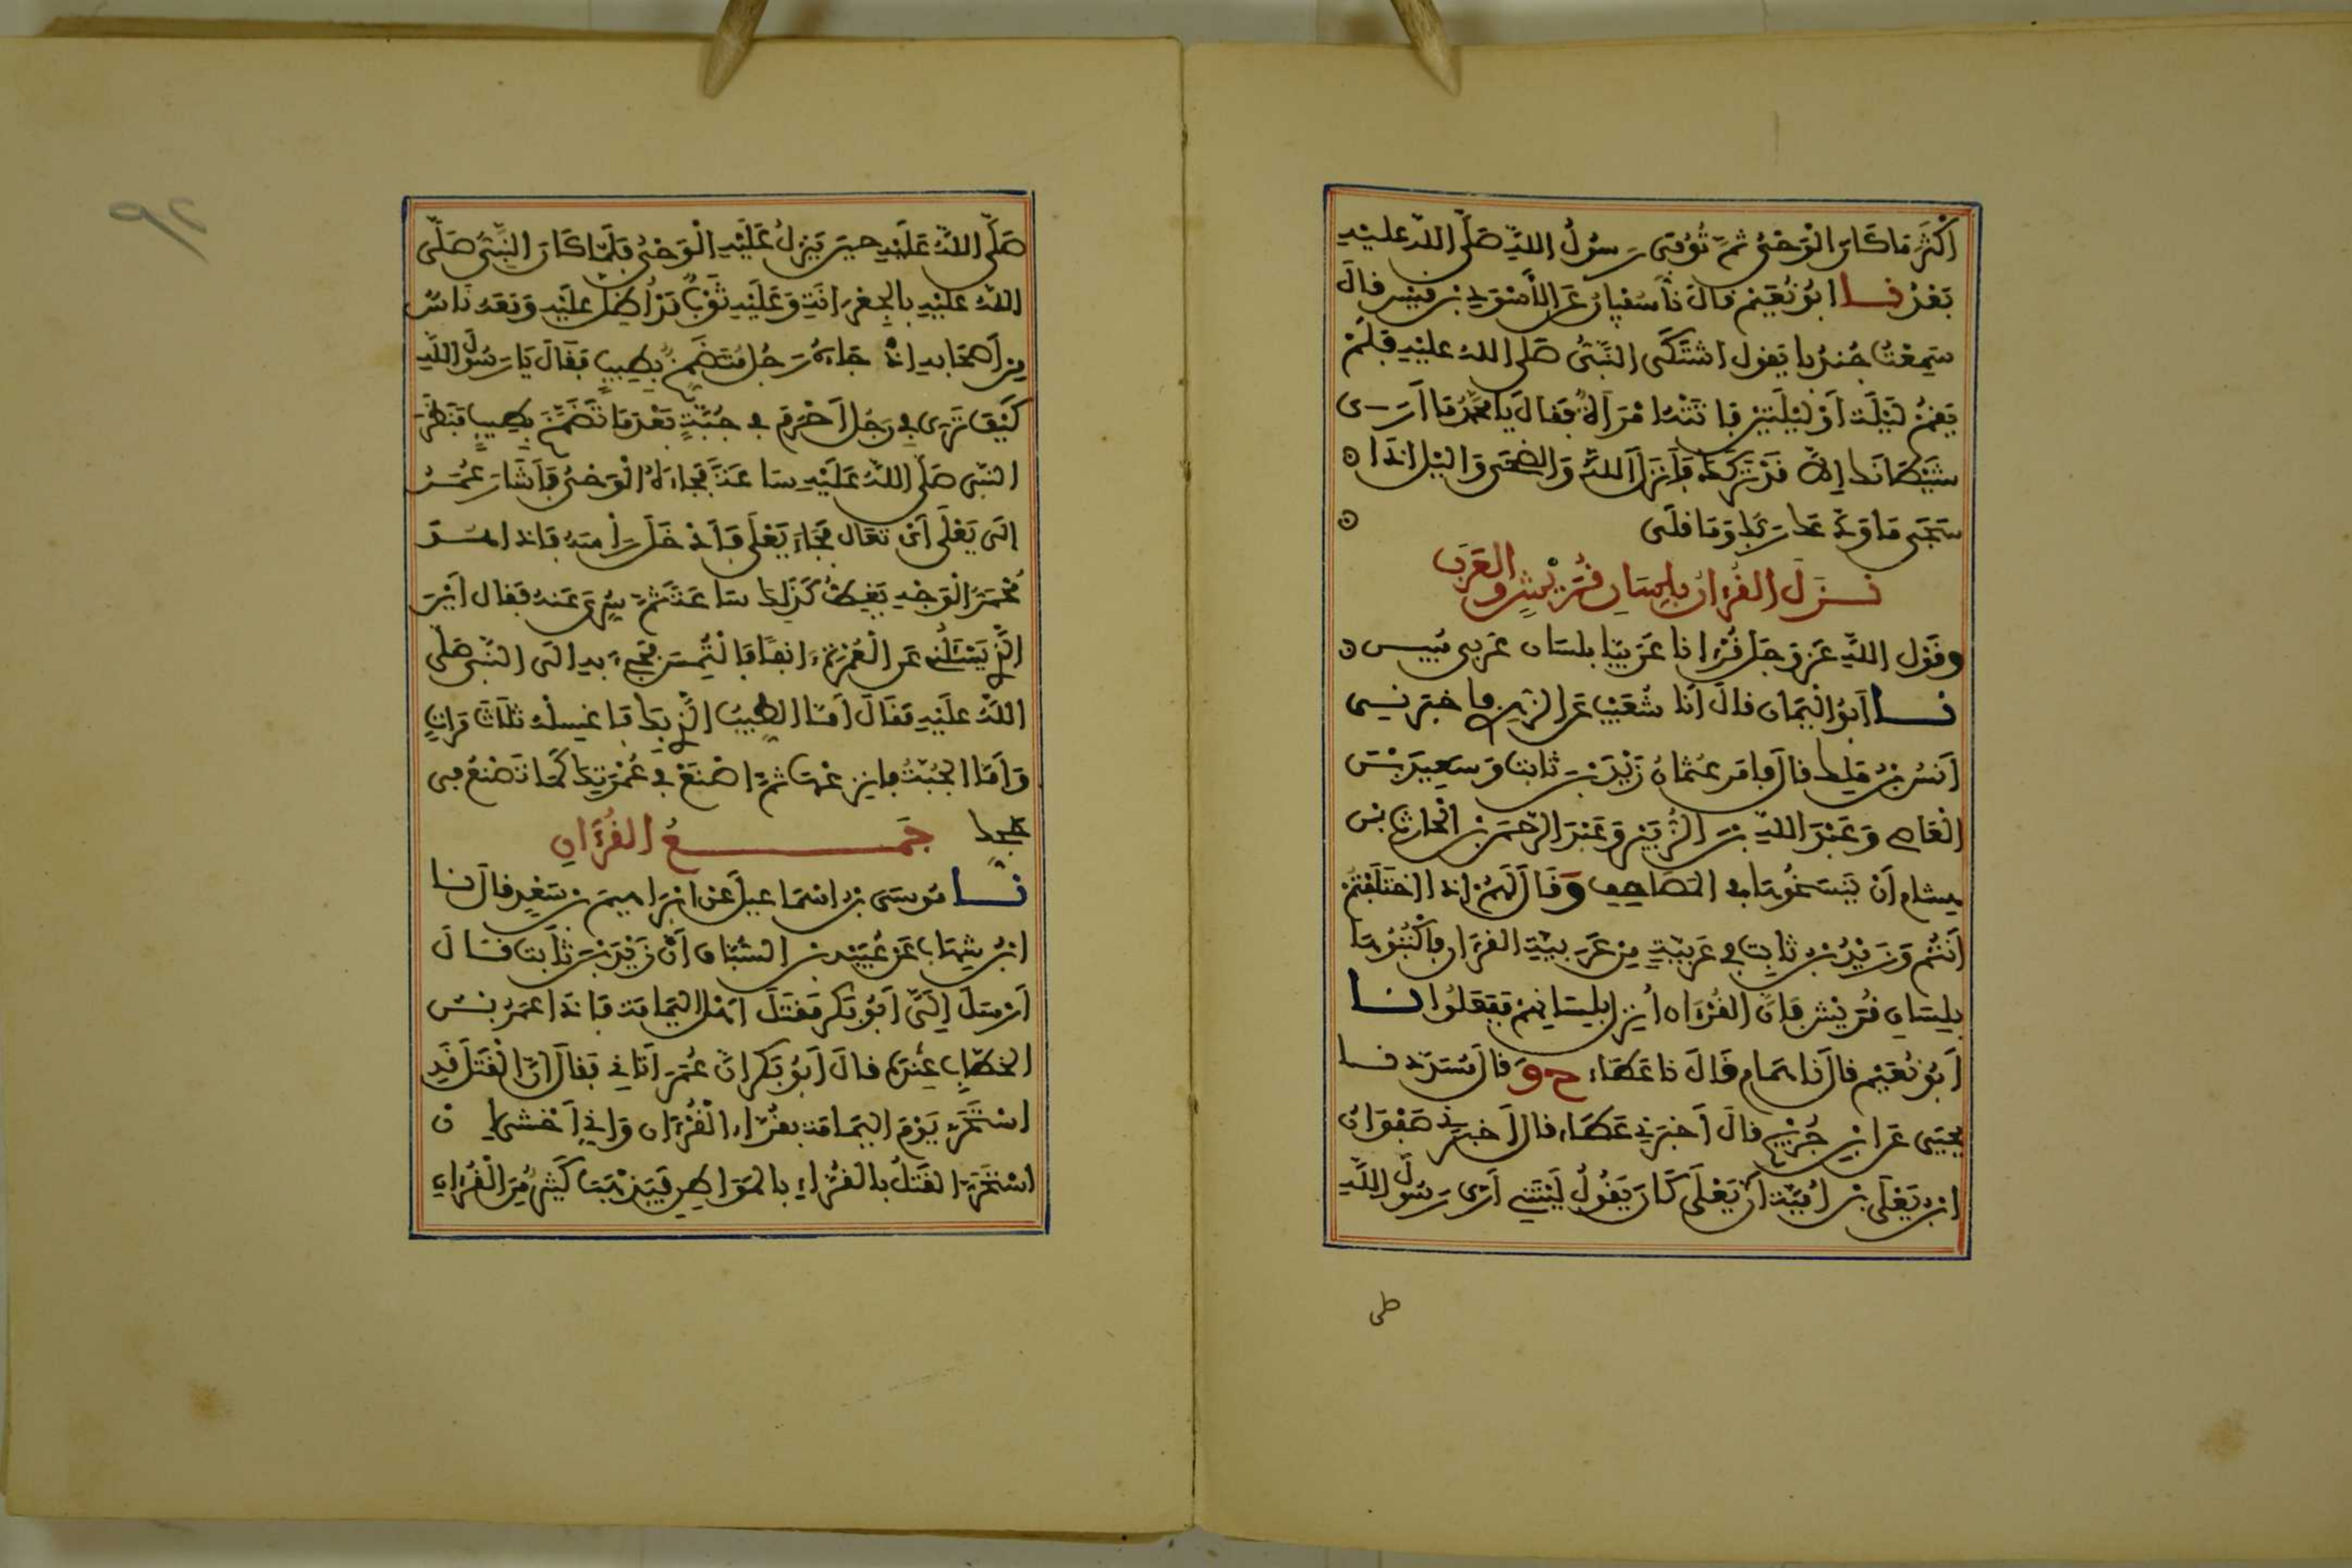 اَكْثَرَ مَا كَانَ الْوَحْيُ ثُمَّ تُوُفِّيَ رَسُولُ اللهِ صَلَّى اللهُ عليْهِ
بَعْدُ نا ابُو نُعَيْمٍ قالَ نا سُفْيَانُ عَنِ الأَسْوَدِ بْنِ قَيْسٍ قالَ
سَمِعْتُ جُنْدُبا يَقول اشْتَكَى النَّبِيُّ صَلى اللهُ عليْهِ فَلَمْ
يَقُمْ لَيْلَةً اَوْ لَيْلَتَيْنِ فَاتَتْهُ امْرَأَةٌ فَقالَ يَا مُحَمَّدُ مَا اَرَى
شَيْطَانَكَ إِلاَّ قَدْ تَرَكَكَ فَاَنزَلَ اللهُ وَالضُّحَى وَاليْلِ اذَا
سَجَى مَا وَدَّعَكَ رَبُّكَ وَمَا قلَى
نَزَلَ القُرْءانُ بلِسَانِ قُرَيْشٍ والعَرَبِ
وقَوْلِ اللهِ عَزَّ وَجَلَّ قُرْءانا عَرَبِيّا بلسَان عَرَبى مُّبِيس
نا اَبُو الْيَمَان قالَ أَنا شُعَيْب عَنِ الزهرى فاخبَرَنِى
اَنَسُ بْنُ مَلِكٍ قالَ فامَرَ عُثمانُ زَيْدَ بْنَ ثابت وَسَعِيدَ بْنَ
الْعَاصِ وَعَبْدَ اللهِ بْنَ الزُّبَيْرِ وَعَبْدَ الرَّحْمَنِ بْنَ الْحَارِثِ بْنِ
هِشام اَنْ يَنسَخُوهَا فِي المَصَاحِفِ وَقَالَ لَهُمْ إِذَا اخْتَلَفْتُمْ
اَنتُمْ وَزَيْدُ بْنُ ثَابِت فِي عَرَبِيَّةٍ مِنْ عَرَبِيَّةِ القُرْءَانِ فَاكْتُبُوهَا
بِلِسَانِ قُرَيْشٍ فَإنَّ القُرْءَانَ أُنزِلَ بِلِسَانِهِمْ فَفَعَلُوا نا
اَبُو نُعَيْمٍ قالَ نا هَمَّام قَالَ نا عَطَاء ح وَ قالَ مُسَدَّد نا
يحيَى عَنِ ابْنِ جُرَيْج قالَ أَخْبَرَنِي عَطَاء قالَ أَخبَرَنِي صَفْوَانُ
ابْنُ يَعْلَى بْنِ أُمَيَّةَ أَنَّ يَعْلَى كَانَ يَقُولُ لَيْتَنِي أَرَى رَسُولَ اللهِ
صلى
صَلَّى اللهُ عَلَيْهِ حِينَ يَنزِلُ عَلَيْهِ الْوَحْيُ فَلَمَّا كَانَ النَّبِيُّ صَلَّى
اللهُ عليْهِ بالجِعْرَانَةِ وَعَلَيْهِ ثَوْبٌ قَدْ أُظِلَّ عليْهِ وَمَعَهُ نَاسٌ
مِنْ أَصْحَابِهِ اِذْ جَاءَهُ رَجُلٌ مُتَضَمِّخٌ بِطِيبٍ فَقَالَ يَا رَسُولَ اللهِ
كَيْفَ تَرَى فِي رَجُلٍ أَحْرَمَ فِي جُبَّةٍ بَعْدَ مَا تَضَمَّخَ بِطِيبٍ فَنَظَرَ
النَّبِي صَلَّى اللهُ عَلَيْهِ سَاعَةً فَجَاءَهُ الْوَحْيُ فَأَشَارَ عُمَرُ
إلَى يَعْلَى أَنْ تَعَالَ فَجَاءَ يَعْلَى فَأَدْخَلَ رَأْسَهُ فَإِذَا هُوَ
مُحْمَرُّ الْوَجْهِ يَغِطُّ كَذَلِكَ سَاعَةً ثُمَّ سُرِّيَ عَنهُ فَقَال أَيْنَ
الَّذِي يَسْئَلُنِي عَنِ الْعُمْرَةِ ءانِفًا فَالْتُمِسَ فَجِيءَ بِهِ الَى النَّبِي صَلَّى
اللهُ عَلَيْهِ فَقَالَ أَمَّا الطِّيبُ الَّذِي بِكَ فَاغْسِلْهُ ثَلَاثَ مَرَّاتٍ
وَأَمَّا الجُبَّةُ فانزِعْهَا ثُمَّ اصْنَعْ فِي عُمْرَتِكَ كَمَا تَصْنَعُ فِي
حجك جَمْعُ القُرْءَانِ
نا مُوسَى بْنُ اسْمَاعِيلَ عَنْ ابْرَاهِيمَ بْنِ سَعْدٍ قالَ نا
ابْنُ شِهَاب عَنْ عُبَيْدِ بْنِ السَّبَّاقِ أَنَّ زَيْدَ بْنَ ثَابت قَالَ
أَرْسَلَ إِلَيَّ أَبُو بَكر مَقتَلَ اَهْلِ اليَمَامَة فَإِذَا عمَرُ بْنُ
الخطَّابِ عِنْدَهُ قالَ أَبُو بَكر إِنَّ عُمَرَ أَتَانِي فَقالَ إِنَّ الْقَتْلَ قَدِ
اسْتَحَرَّ يَوْمَ اليَمَامَة بِقُرَّاء الْقُرْءَان وَإِنِّي أَخْشَى إِن
اسْتَحَرَّ القَتْلُ بالقُرَّاء بالمَوَاطِنِ فَيَذْهَبَ كَثِيرٌ مِنَ الْقُرْءَانِ